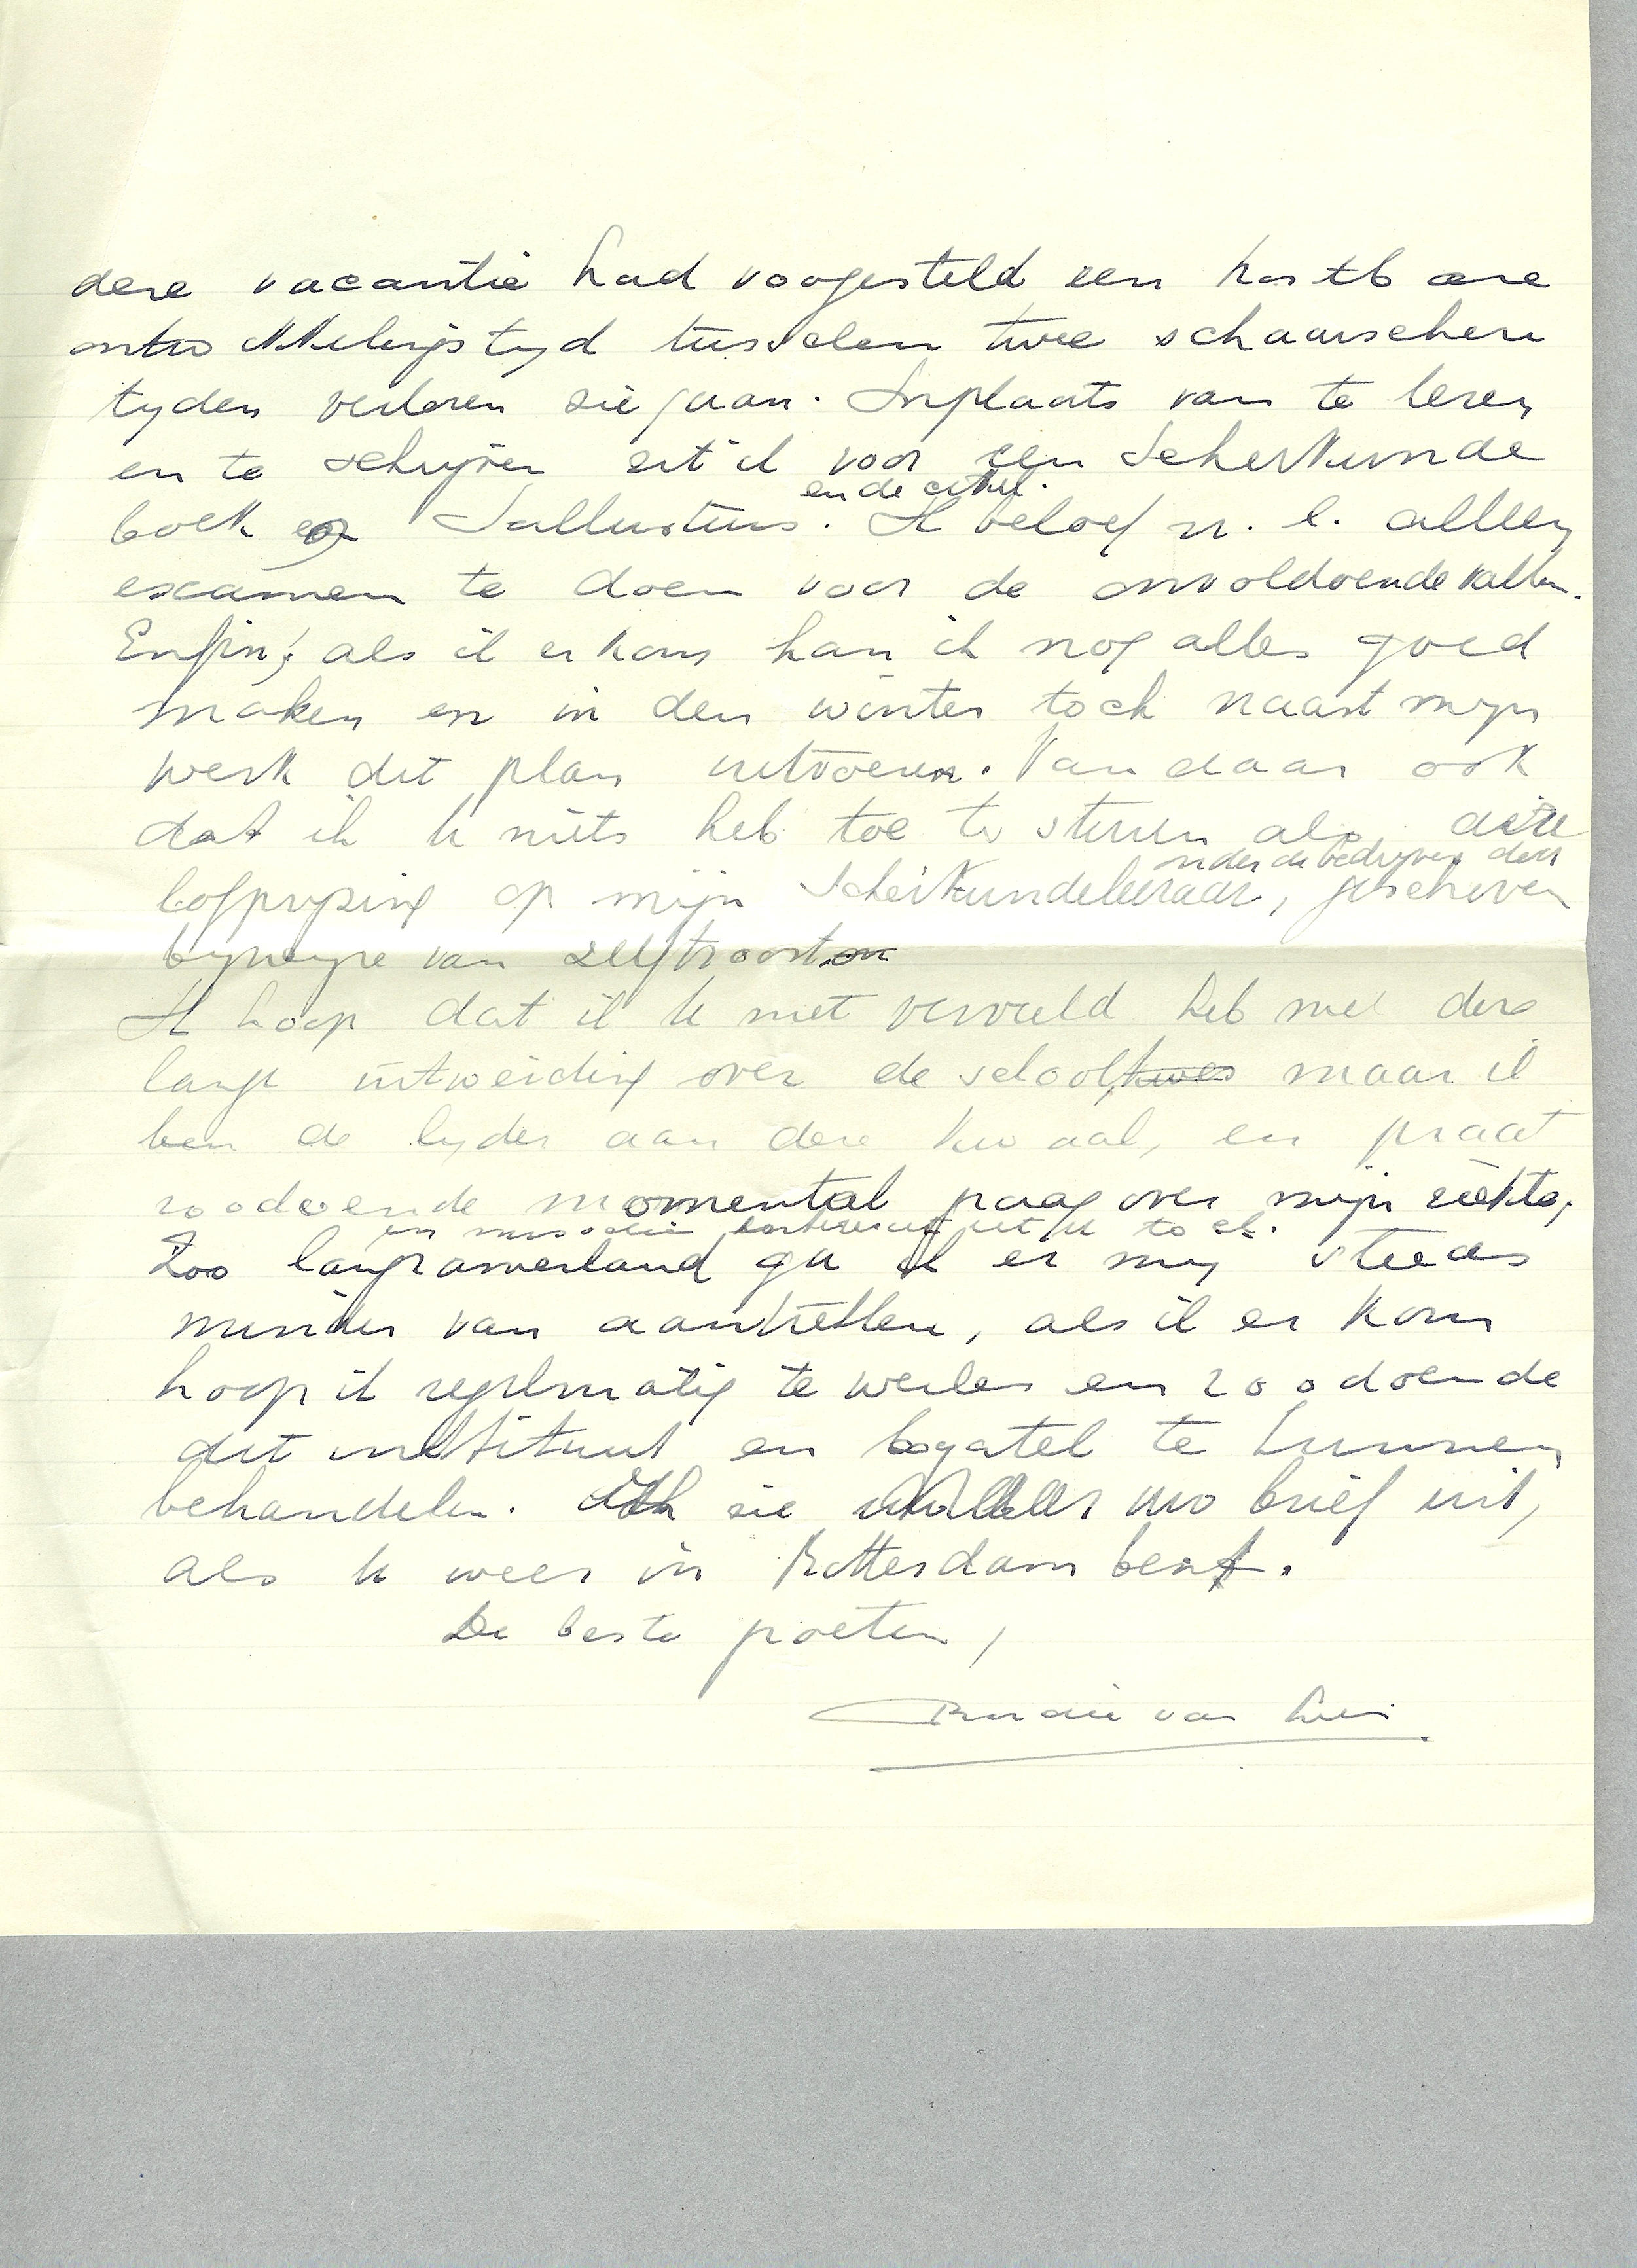 deze vacantie had voorgesteld een kostbare
ontwikkelingstijd tusschen twee schaarschere
tijden verloren zie gaan. Inplaats van te lezen
en te schrijven zit ik voor een Scheikunde
en de cirkel.
boek Sallustius. Ik beloof n. l. alleen
examen te doen voor de onvoldoende vakken.
Enfin, als ik er kom kan ik nog alles goed
maken en in den winter toch naast mijn
werk dit plan uitvoeren. Vandaar ook
dat ik U niets heb toe te sturen als deze
onder de bedrijven door
lofprijzing op mijn Scheikundeleeraar, geschreven
bijwijze van zelftroost
Ik hoop dat ik U niet verveeld heb met deze
lange uitweiding over de school maar ik
ben de lijder aan deze kwaal, en praat
zoodoende momenteel graag over mijn ziekte,
en misschien interesseert het U toch.
Zoo langzamerhand ga ik er mij steeds
minder van aantrekken, als ik er kom
hoop ik regelmatig te werken en zoodoende
dit instituut en bagatel te kunnen
behandelen. Ik zie uw brief uit,
als U weer in Rotterdam bent.
De beste groeten,